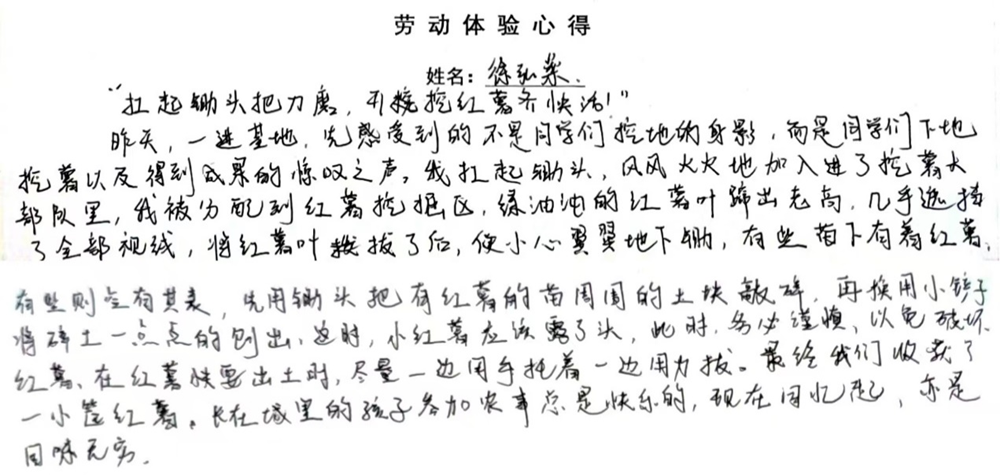 劳动体验心得
姓名：徐弘
"扛起锄头把刀磨，挖红薯齐快活！"
昨天，一进基地，先感受到的不是同学们挖地的身影，而是同学们下地
挖薯以及得到成果的惊叹之声。我扛起锄头，风风火火地加入进了挖薯大
部队里，我被分配到红薯挖掘区，绿油油的红薯叶蹿出老高，几乎遮挡
了全部视线，将红薯叶拔了后，便小心翼翼地下锄，有些苗下有着红薯，
有些则空有其表，先用锄头把有红薯的苗周围的土块敲碎，再换用小铲子
将碎土一点点的刨出，这时，小红薯应该露了头，此时，务必谨慎，以免破坏
红薯。在红薯快要出土时，尽量一边用手托着一边用力拔。最终我们收获了
一小筐红薯。长在城里的孩子参加农事总是快乐的，现在回忆起，亦是
回味无穷。